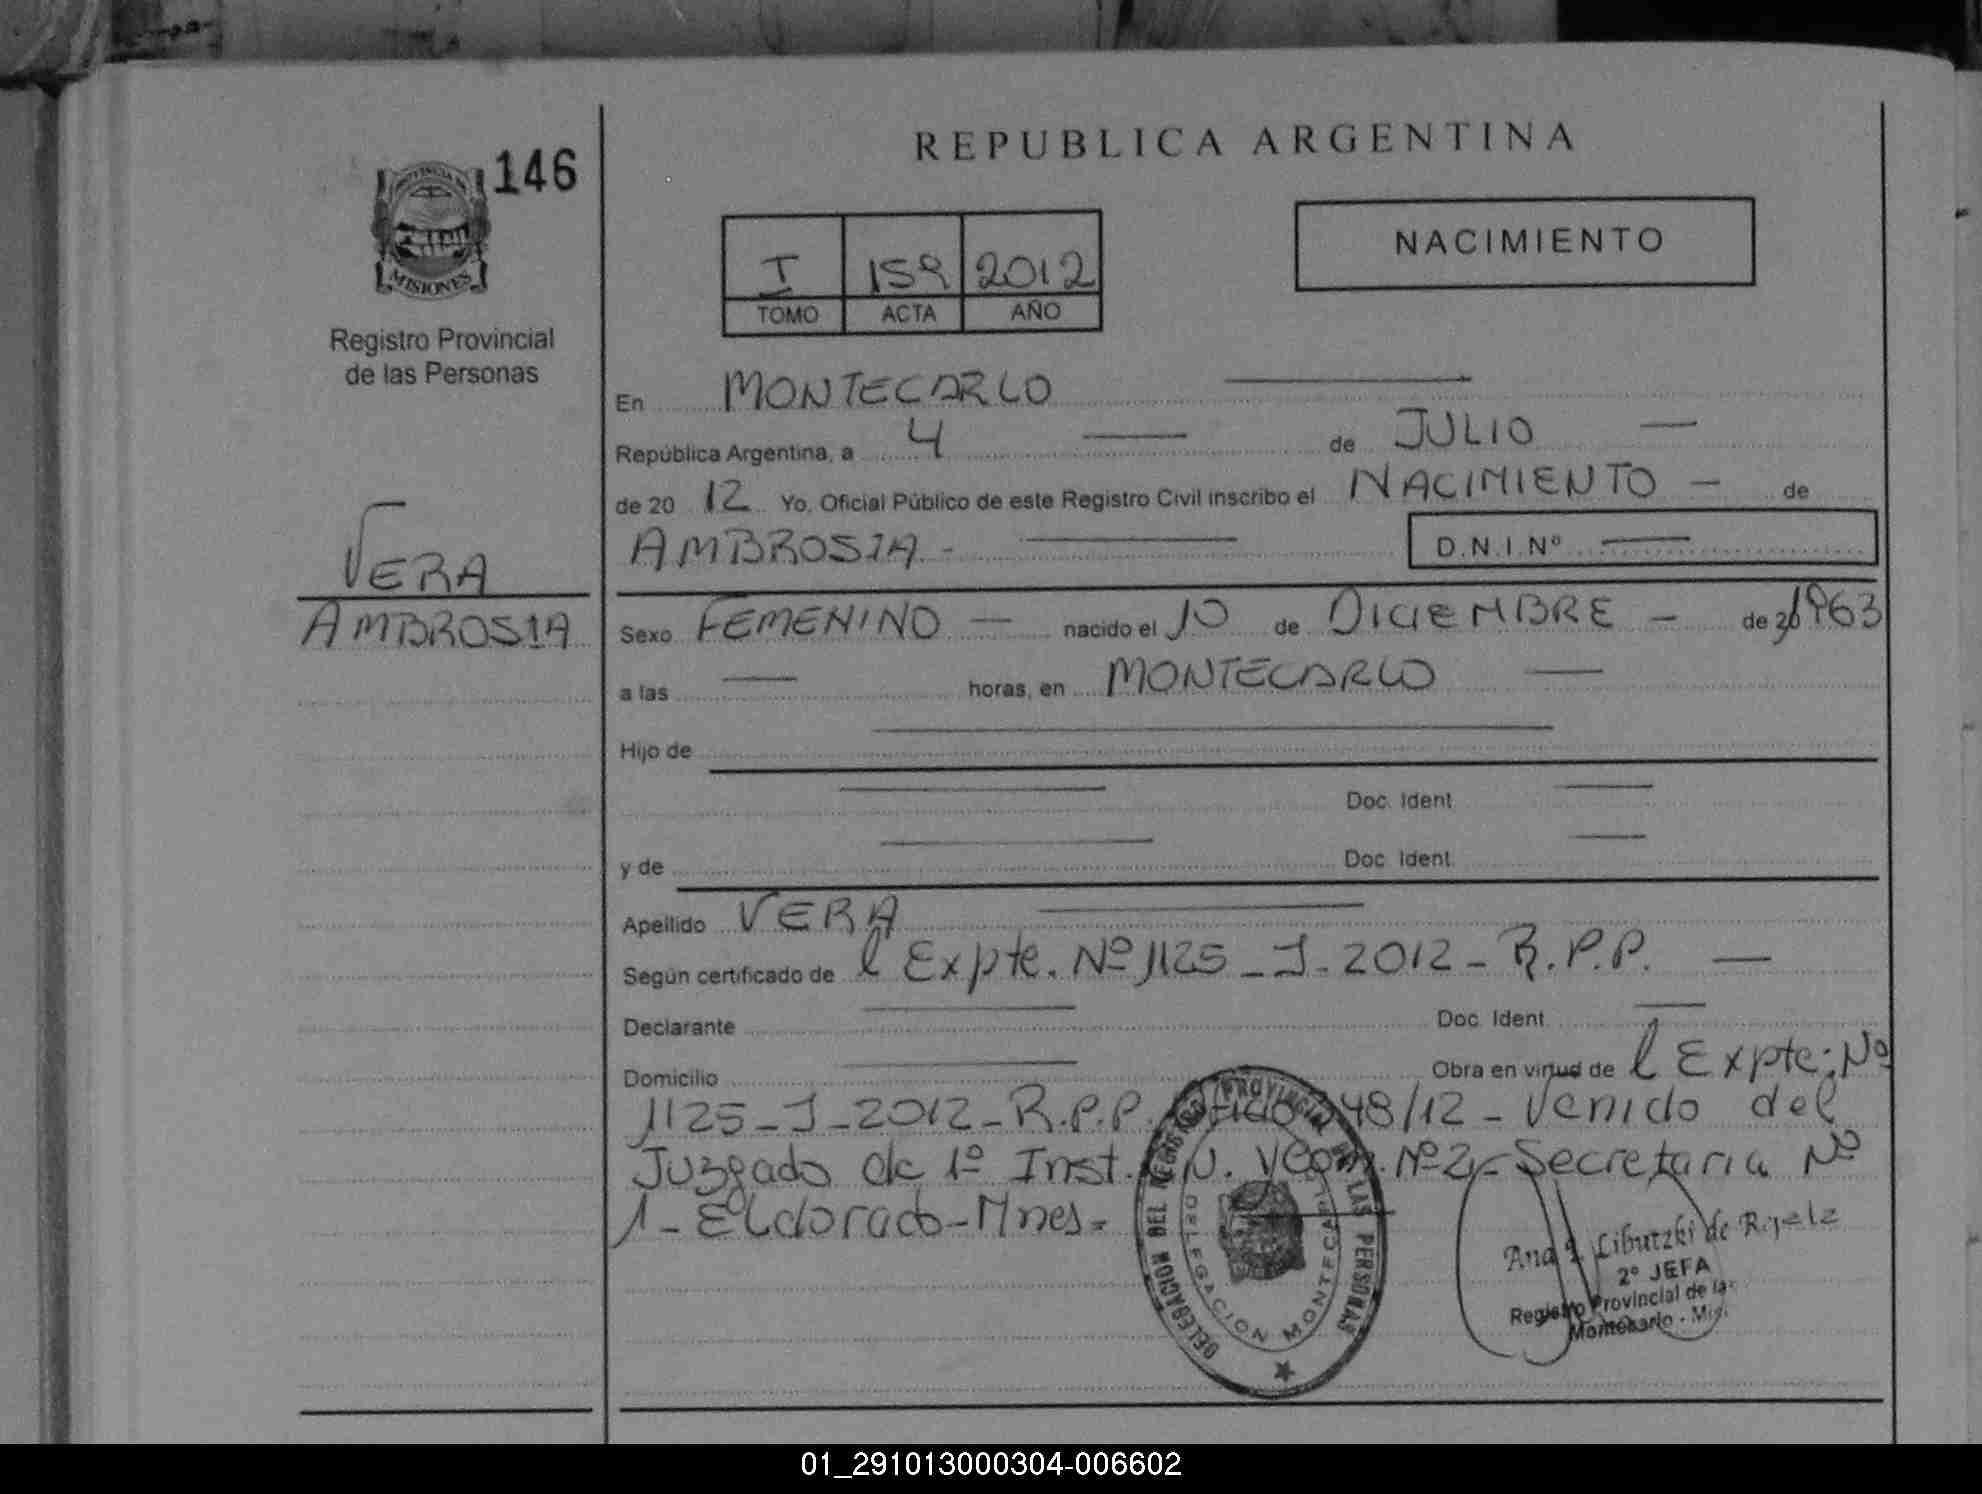 REPUBLICA ARGENTINA
146
PROVINCIA DE
MISIONES
Registro Provincial
de las Personas
I 159 2012
TOMO ACTA AÑO
NACIMIENTO
En MONTECARLO
República Argentina, a 4 de JULIO
de 20 12 Yo, Oficial Público de este Registro Civil inscribo el NACIMIENTO - de
AMBROSIA - D.N.I.Nº
VERA
AMBROSIA
Sexo FEMENINO - nacido el 10 de DICIEMBRE - de 1963
a las horas, en MONTECARLO
Hijo de
Doc. Ident
y de Doc. Ident.
Apellido VERA
Según certificado de l Expte. Nº 1125 - J - 2012 - R.P.P.
Declarante Doc. Ident.
Domicilio Obra en virtud de l Expte: Nº
1125 - J - 2012 - R.P.P. 48/12 - Venido del
Juzgado de 1º Inst. Nº 2 - Secretaria Nº
1 - Eldorado - Mnes -
DELEGACION DEL REGISTRO PROVINCIAL DE LAS PERSONAS
DELEGACION MONTECARLO
Ana Libutzki de
2º JEFA
Registro Provincial de las
Montecarlo - Mis.
01_291013000304-006602